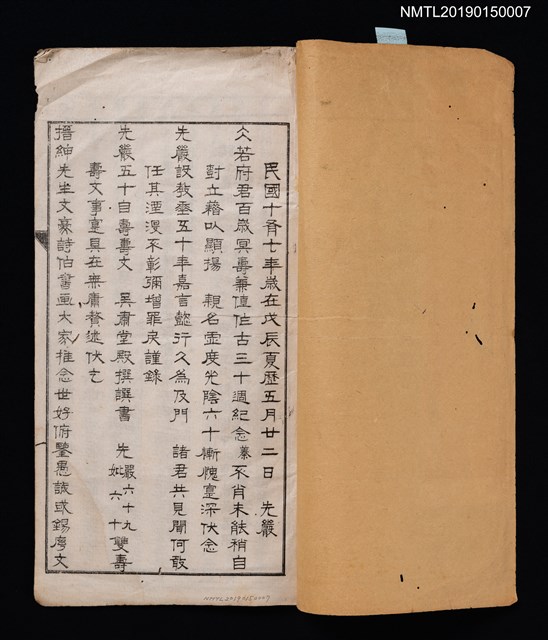 NMTL20190150007
民國十有七年歲在戊辰夏歷五月廿二日　先嚴
久若府君百歲冥壽兼值作古三十週紀念蓁不肖未能稍自
封立藉以顯揚　親名虛度光陰六十慚愧寔深伏念
先嚴設教垂五十年嘉言懿行久為及門　諸君共見聞何敢
任其湮沒不彰彌增罪戾謹錄
先嚴五十自壽壽文　吳肅堂殿撰譔書　先嚴六十九妣六十雙壽
壽文事寔具在無庸贅述伏乞
搢紳先生文豪詩伯書畫大家推念世好俯鑒愚誠或錫序文
NMTL20190150007